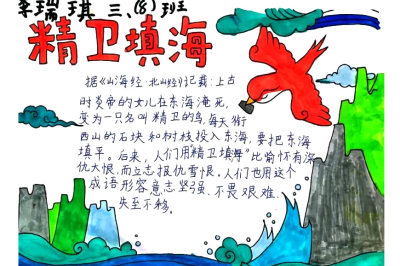 李瑞琪 三、(8) 班
精卫填海
据《山海经·北山经》记载:上古
时炎帝的女儿在东海淹死,
变为一只名叫精卫的鸟,每天衔
西山的石块和树枝投入东海,要把东海
填平。后来,人们用"精卫填海"比喻怀有深
仇大恨,而立志报仇雪恨。人们也用这个
成语形容意志坚强、不畏艰难、
失至不移。